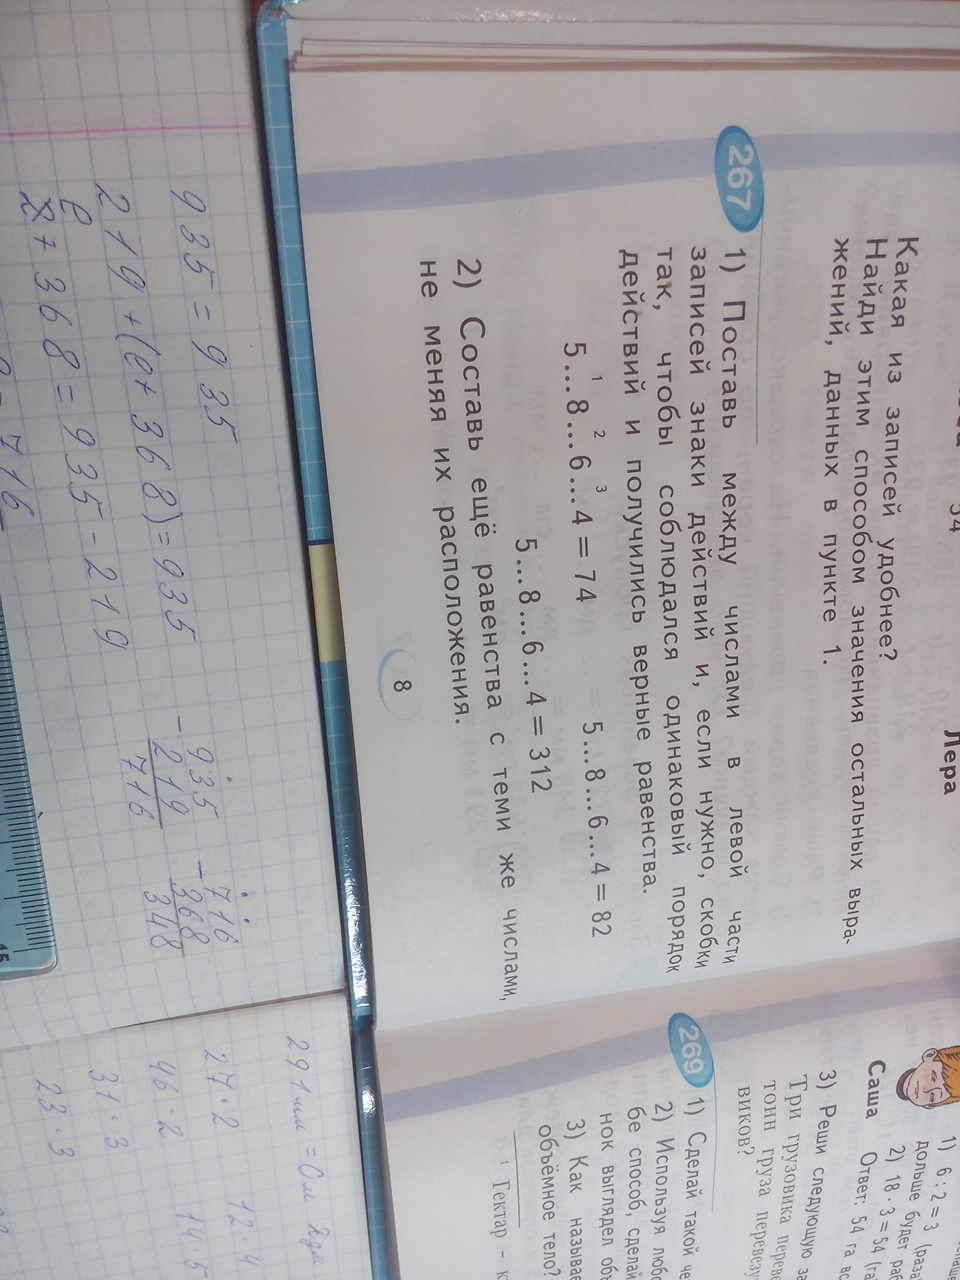 Лера
Какая из записей удобнее?
Найди этим способом значения остальных выра-
жений, данных в пункте 1.
267
1) Поставь между числами в левой части
записей знаки действий и, если нужно, скобки
так, чтобы соблюдался одинаковый порядок
действий и получились верные равенства.
1 2 3
5...8...6...4 = 74 5...8...6...4 = 82
5...8...6...4 = 312
2) Составь ещё равенства с теми же числами,
не меняя их расположения.
8
Саша
1) 6 : 2 = 3 (раза)
дольше будет
2) 18 · 3 = 54 (га
Ответ: 54 га
3) Реши следующую
Три грузовика
тонн груза
виков?
269
1) Сделай такой
2) Используя
бе способ,
нок выглядел
3) Как
объёмное тело?
1 Гектар –
935 = 935
219 + (e + 368) = 935
e
x + 368 = 935 - 219
716
935
- 219
716
716
- 368
348
291 мм = 0м 2дм
27 · 2 12 · 4
46 · 2 14 · 5
31 · 3
23 · 3